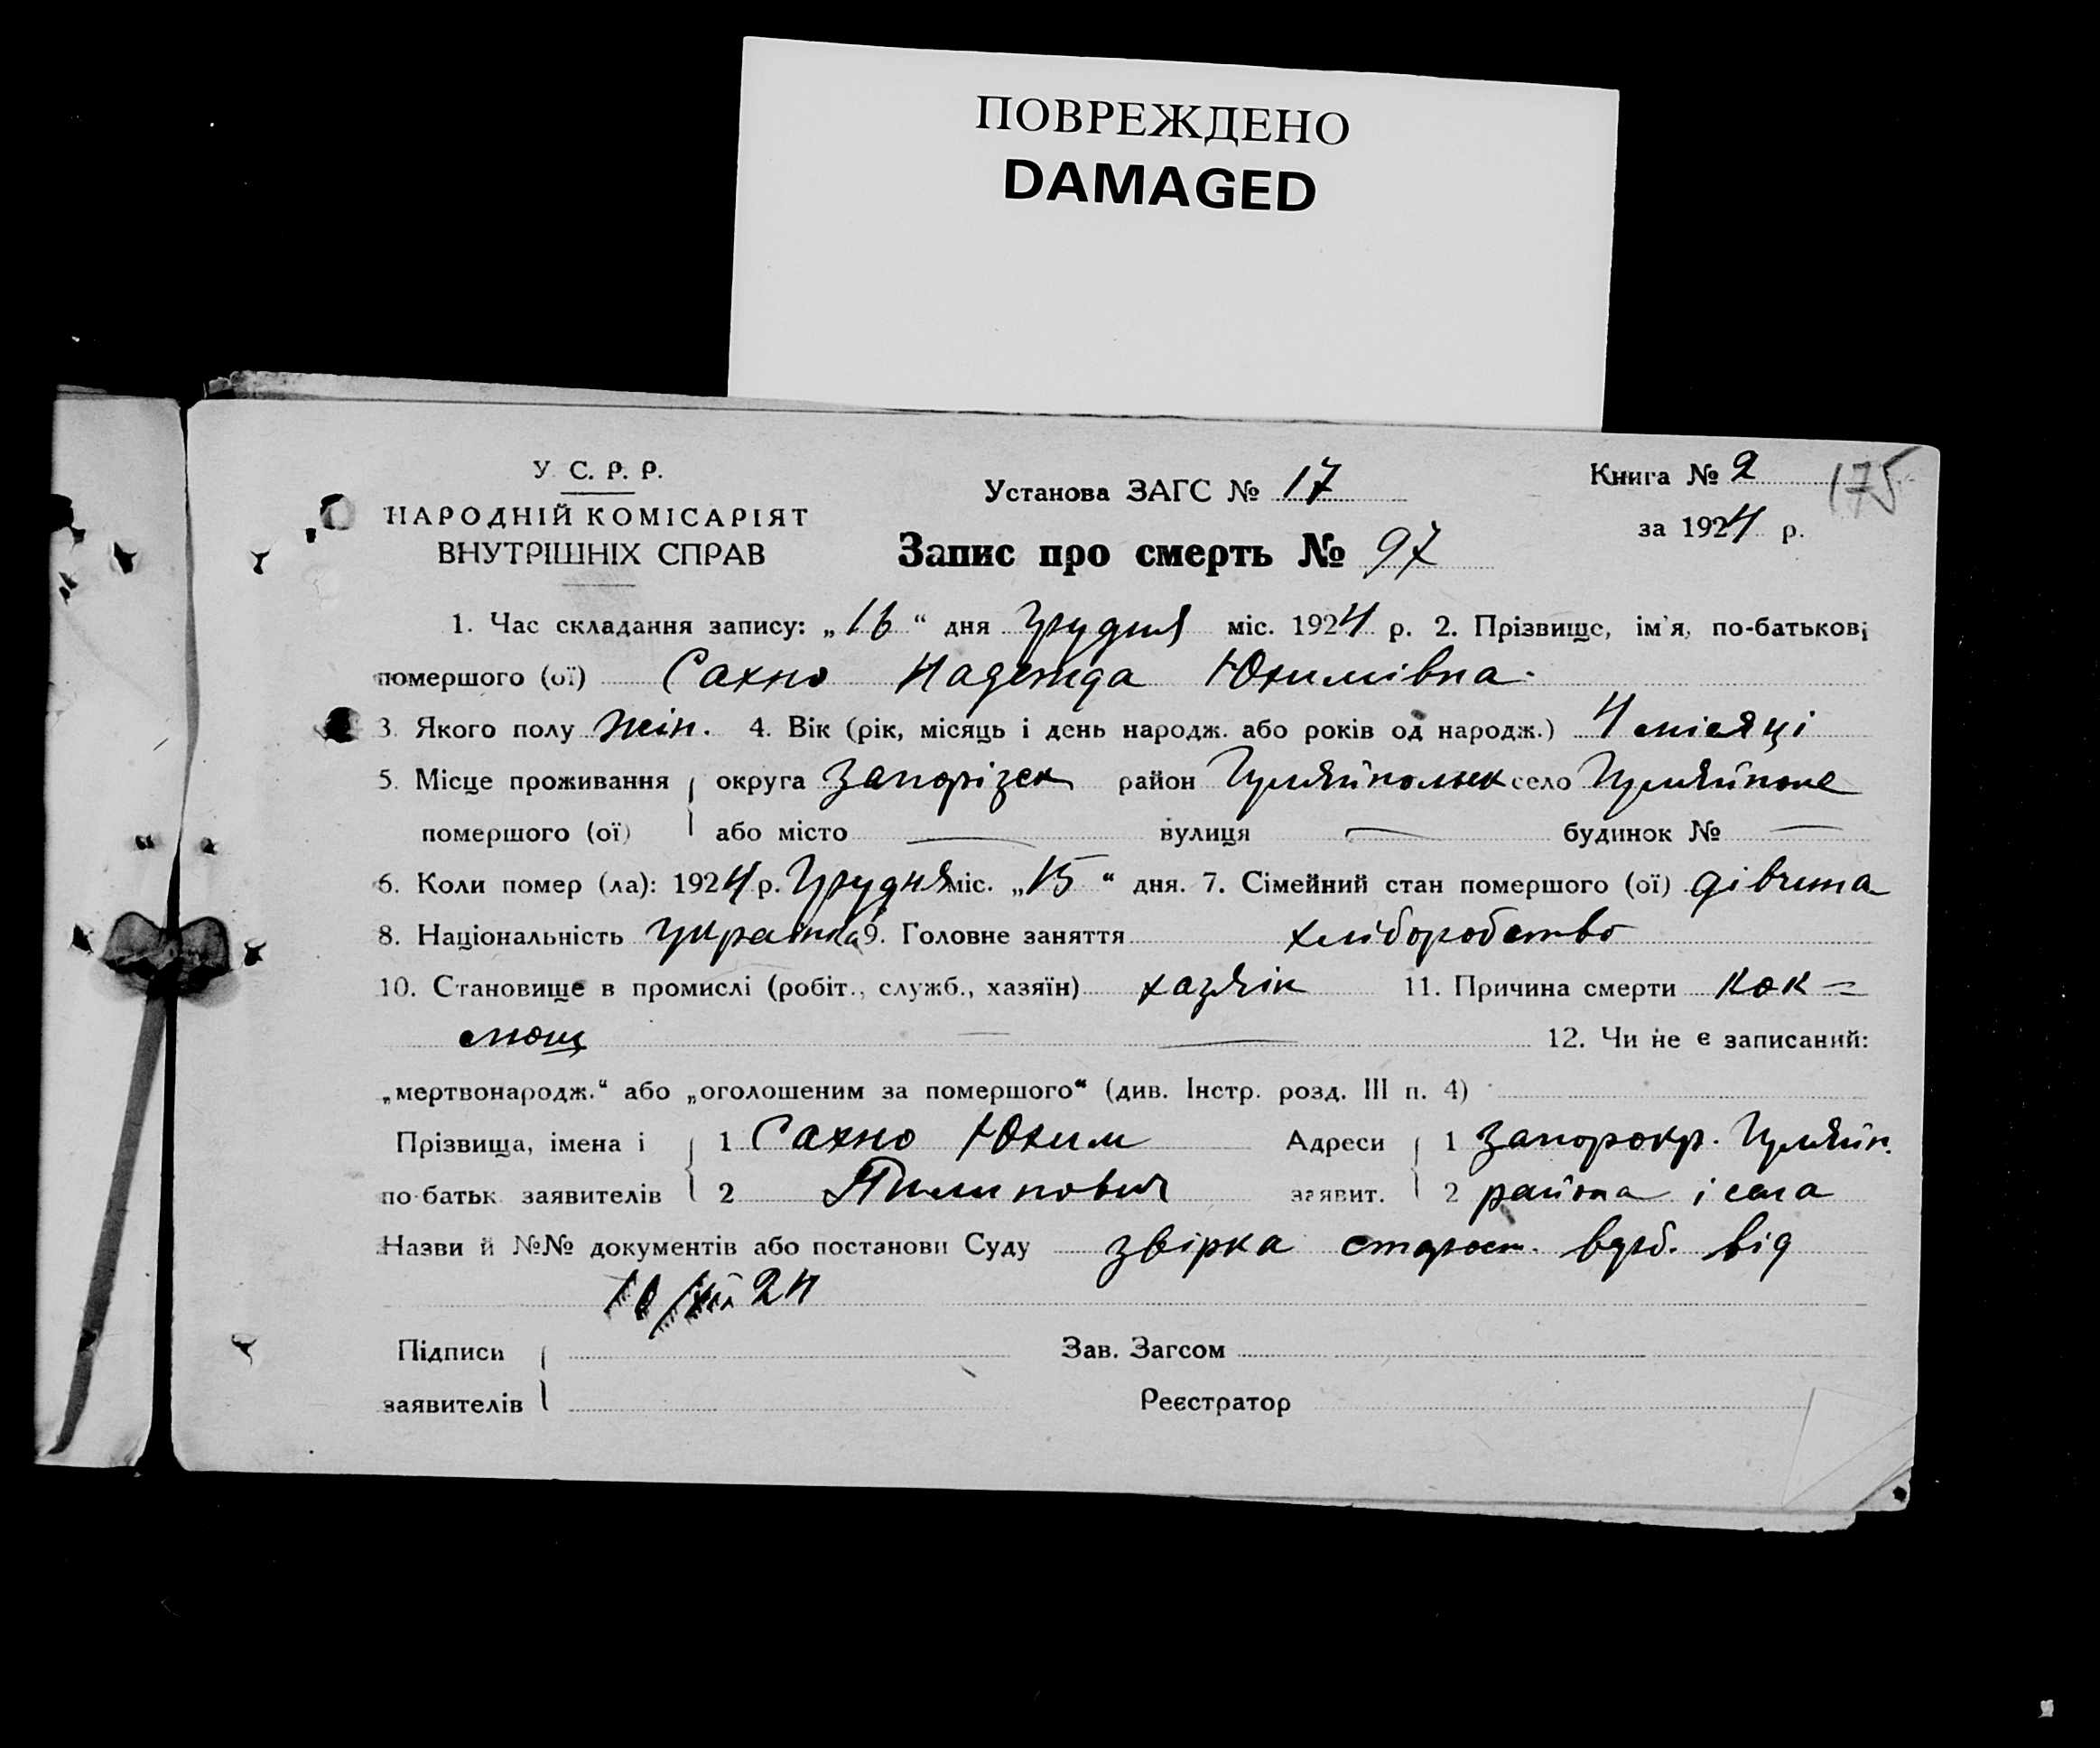 ПОВРЕЖДЕНО
DAMAGED
У. С. Р. Р.
НАРОДНІЙ КОМІСАРІЯТ
ВНУТРІШНІХ СПРАВ
Установа ЗАГС № 17
Книга № 2
175
за 1924 р.
Запис про смерть № 97
1. Час складання запису: „16“ дня Грудня міс. 1924 р. 2. Прізвище, ім'я, по-батькові
помершого (ої) Сахно Надежда Юхимівна.
3. Якого полу жін. 4. Вік (рік, місяць і день народж. або років од народж.) 4 місяці
5. Місце проживання округа Запорізск район Гуляйпольск село Гуляйполе
помершого (ої) або місто — вулиця — будинок № —
6. Коли помер (ла): 1924 р. Грудня міс. „15“ дня. 7. Сімейний стан помершого (ої) дівчина
8. Національність Українка 9. Головне заняття хліборобство
10. Становище в промислі (робіт., служб., хазяїн) хазяїн 11. Причина смерти кок=
люш — — 12. Чи не є записаний:
„мертвонародж.“ або „оголошеним за помершого“ (див. Інстр. розд. III п. 4)
Прізвища, імена і 1 Сахно Юхим Адреси 1 Запорокр. Гуляйп.
по-батьк. заявителів 2 Пилипович заявит. 2 района і села
Назви й №№ документів або постанови Суду звірка старост. від
XII 24
Підписи Зав. Загсом
заявителів Реєстратор